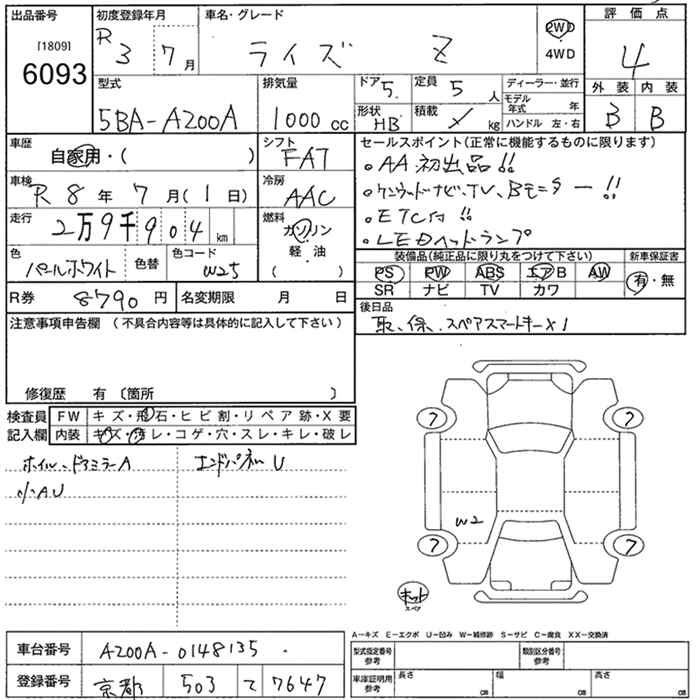 出品番号 初度登録年月 車名・グレード 評価点
[1809]
6093
R 3 7月 ライズ Z 2WD 4
4WD
外装 内装
B B
型式 排気量 ドア 5 定員 5人 ディーラー・並行
モデル年式 年
5BA-A200A 1000cc 形状 HB 積載 kg ハンドル 左・右
車歴 シフト セールスポイント(正常に機能するものに限ります)
自家用・( ) FAT ・AA初出品!!
車検 冷房 ・ケンウッドナビ、TV、Bモニター!!
R8年 7月(1日) AAC ・ETC付!!
走行 燃料 ・LEDヘッドランプ
2万9千904km ガソリン
軽油
( )
色 色替 色コード 装備品(純正品に限り丸をつけて下さい) 新車保証書
パールホワイト W25 PS PW ABS エアB AW 有・無
SR ナビ TV カワ
R券 8790円 名変期限 月 日 後日品
取、保、スペアスマートキーx1
注意事項申告欄(不具合内容等は具体的に記入して下さい)
修復歴 有 〔箇所 〕
検査員記入欄 FW キズ・飛石・ヒビ割・リペア跡・X要
内装 キズ・汚レ・コゲ・穴・スレ・キレ・破レ
ホイル・ドアミラーA エンドパネルU
小AU
7 7
W2
7 7
キット
スペア
A－キズ E－エクボ U－凹み W－補修跡 S－サビ C－腐食 XX－交換済
車台番号 A200A-0148135
型式指定番号 参考 類別区分番号 参考
登録番号 京都 503 て 7647
車庫証明用 参考 長さ cm 幅 cm 高さ cm